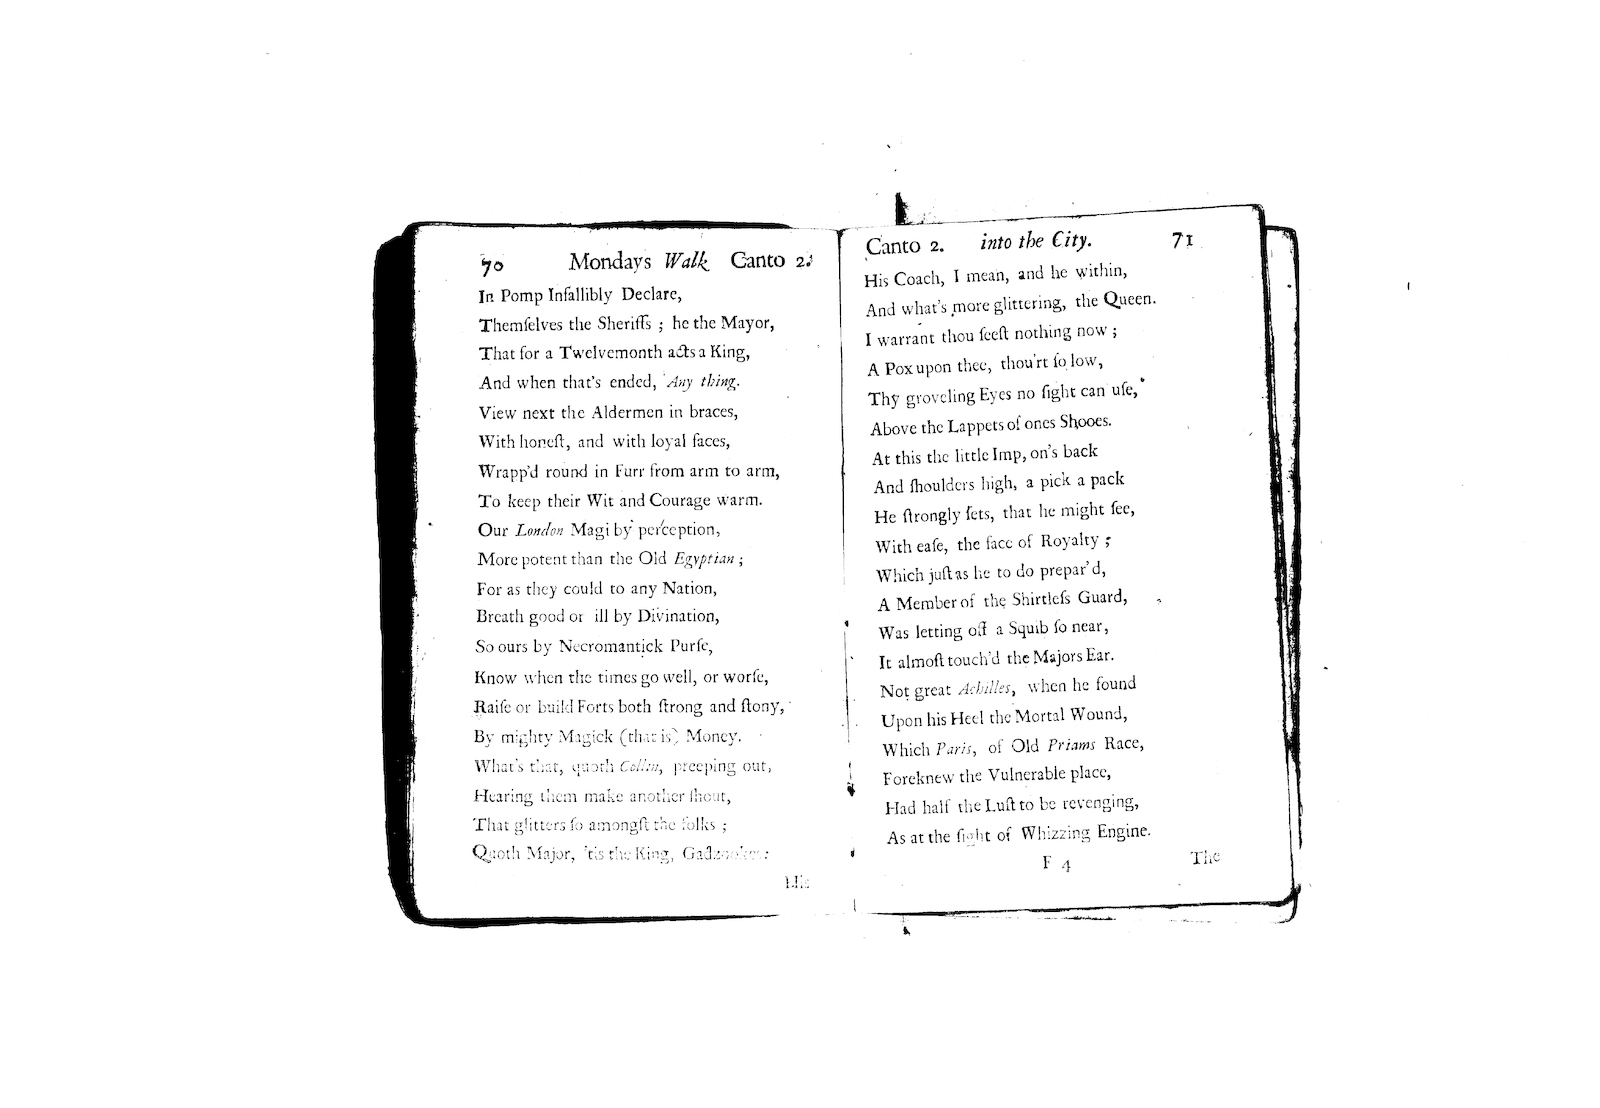 70 Mondays Walk Canto 2.
In Pomp Infallibly Declare,
Themſelves the Sheriffs ; he the Mayor,
That for a Twelvemonth acts a King,
And when that's ended, Any thing.
View next the Aldermen in braces,
With honeſt, and with loyal faces,
Wrapp'd round in Furr from arm to arm,
To keep their Wit and Courage warm.
Our London Magi by perception,
More potent than the Old Egyptian ;
For as they could to any Nation,
Breath good or ill by Divination,
So ours by Necromantick Purſe,
Know when the times go well, or worſe,
Raiſe or build Forts both ſtrong and ſtony,
By mighty Magick (that is) Money.
What's that, quoth Collin, preeping out,
Hearing them make another ſhout,
That glitters ſo amongſt the folks ;
Quoth Major, 'tis the King, Gadzooks :
His
Canto 2. into the City. 71
His Coach, I mean, and he within,
And what's more glittering, the Queen.
I warrant thou ſeeſt nothing now ;
A Pox upon thee, thou'rt ſo low,
Thy groveling Eyes no ſight can uſe,
Above the Lappets of ones Shooes.
At this the little Imp, on's back
And ſhoulders high, a pick a pack
He ſtrongly ſets, that he might ſee,
With eaſe, the face of Royalty ;
Which juſt as he to do prepar'd,
A Member of the Shirtleſs Guard,
Was letting off a Squib ſo near,
It almoſt touch'd the Majors Ear.
Not great Achilles, when he found
Upon his Heel the Mortal Wound,
Which Paris, of Old Priams Race,
Foreknew the Vulnerable place,
Had half the Luſt to be revenging,
As at the ſight of Whizzing Engine.
F 4 The